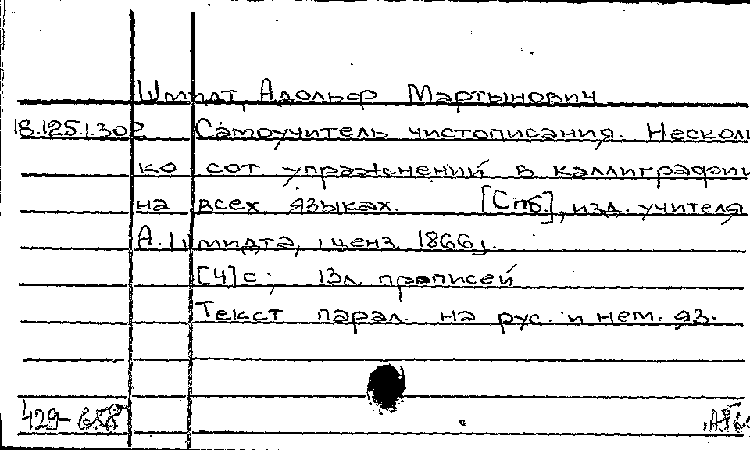 Шмидт, Адольф Мартынович
18.125.1.302 Самоучитель чистописания. Несколь
ко сот упражнений в каллиграфии
на всех языках. [Спб.], изд. учителя
А. Шмидта, ценз. 1866г.
[4]с; 13л. прописей
Текст парал. на рус. и нем. яз.
429-658